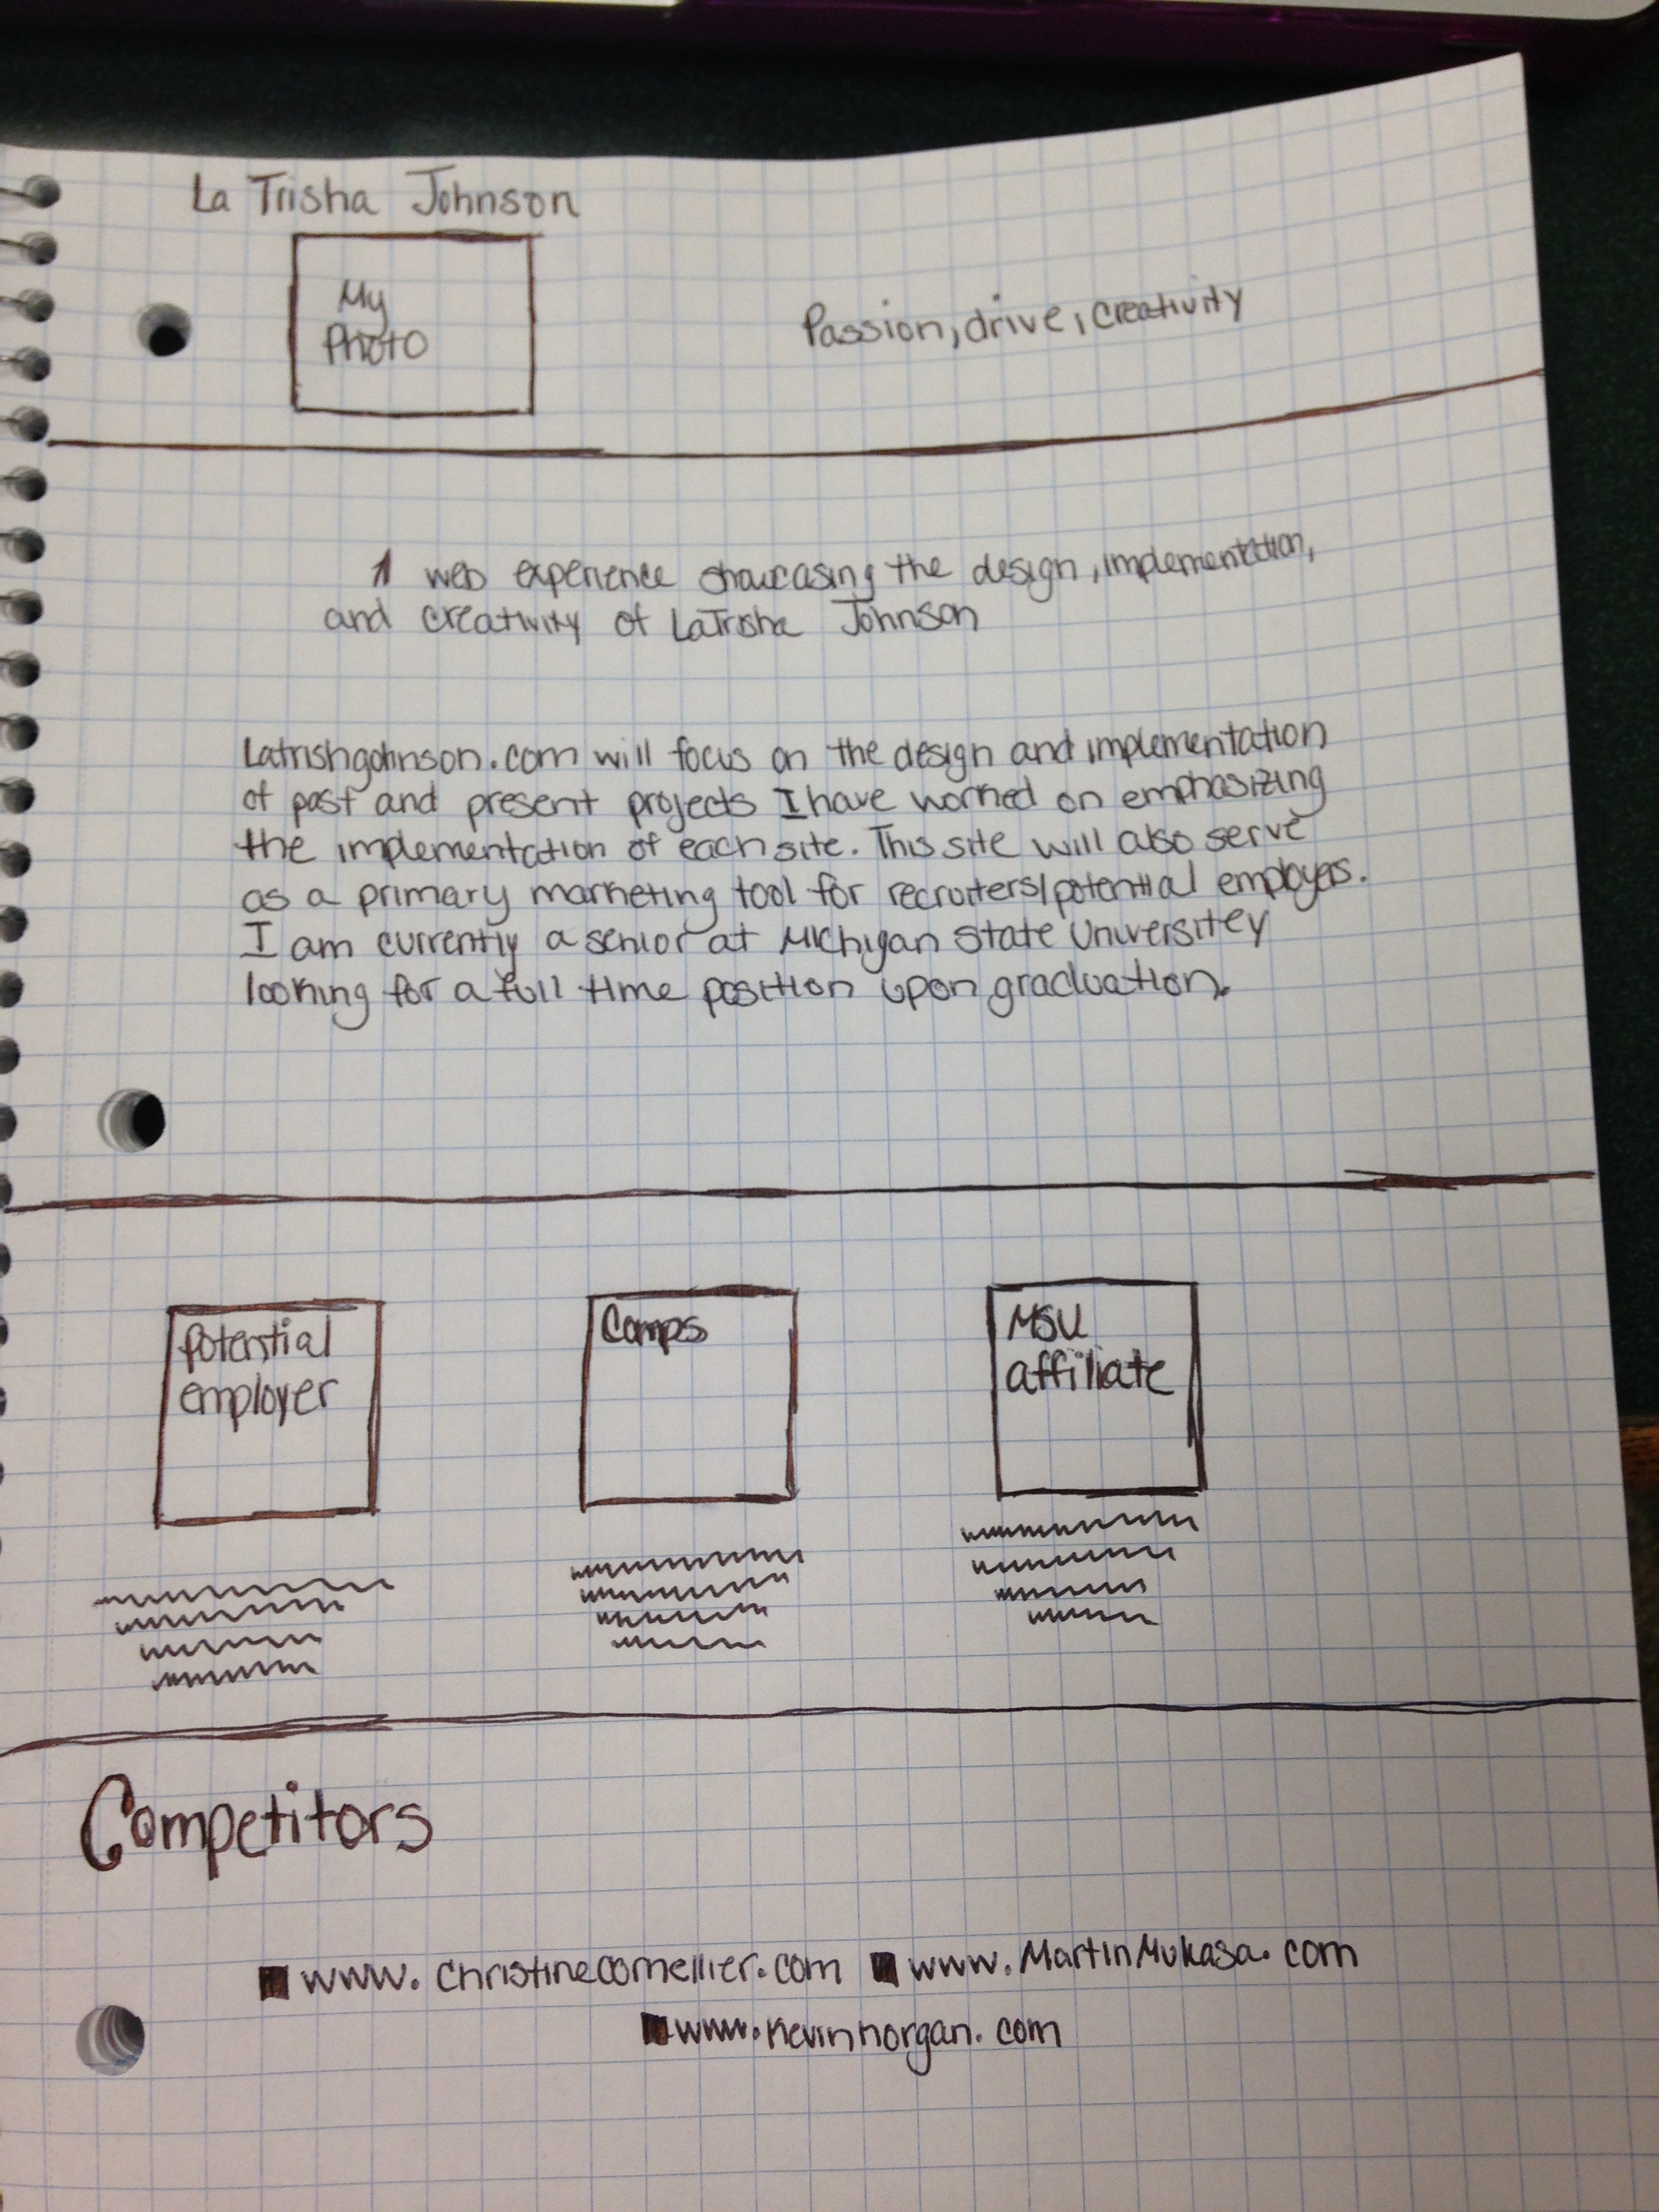 La Trisha Johnson
My
Photo
Passion, drive, creativity
A web experience showcasing the design, implementation,
and creativity of LaTrisha Johnson
Latrishajohnson.com will focus on the design and implementation
of past and present projects I have worked on emphasizing
the implementation of each site. This site will also serve
as a primary marketing tool for recruiters/potential employers.
I am currently a senior at Michigan State Universitey
looking for a full time position upon graduation.
Potential
employer
Comps
MSU
affiliate
Competitors
www.christinecornellier.com www.MartinMukasa.com
www.kevinhorgan.com